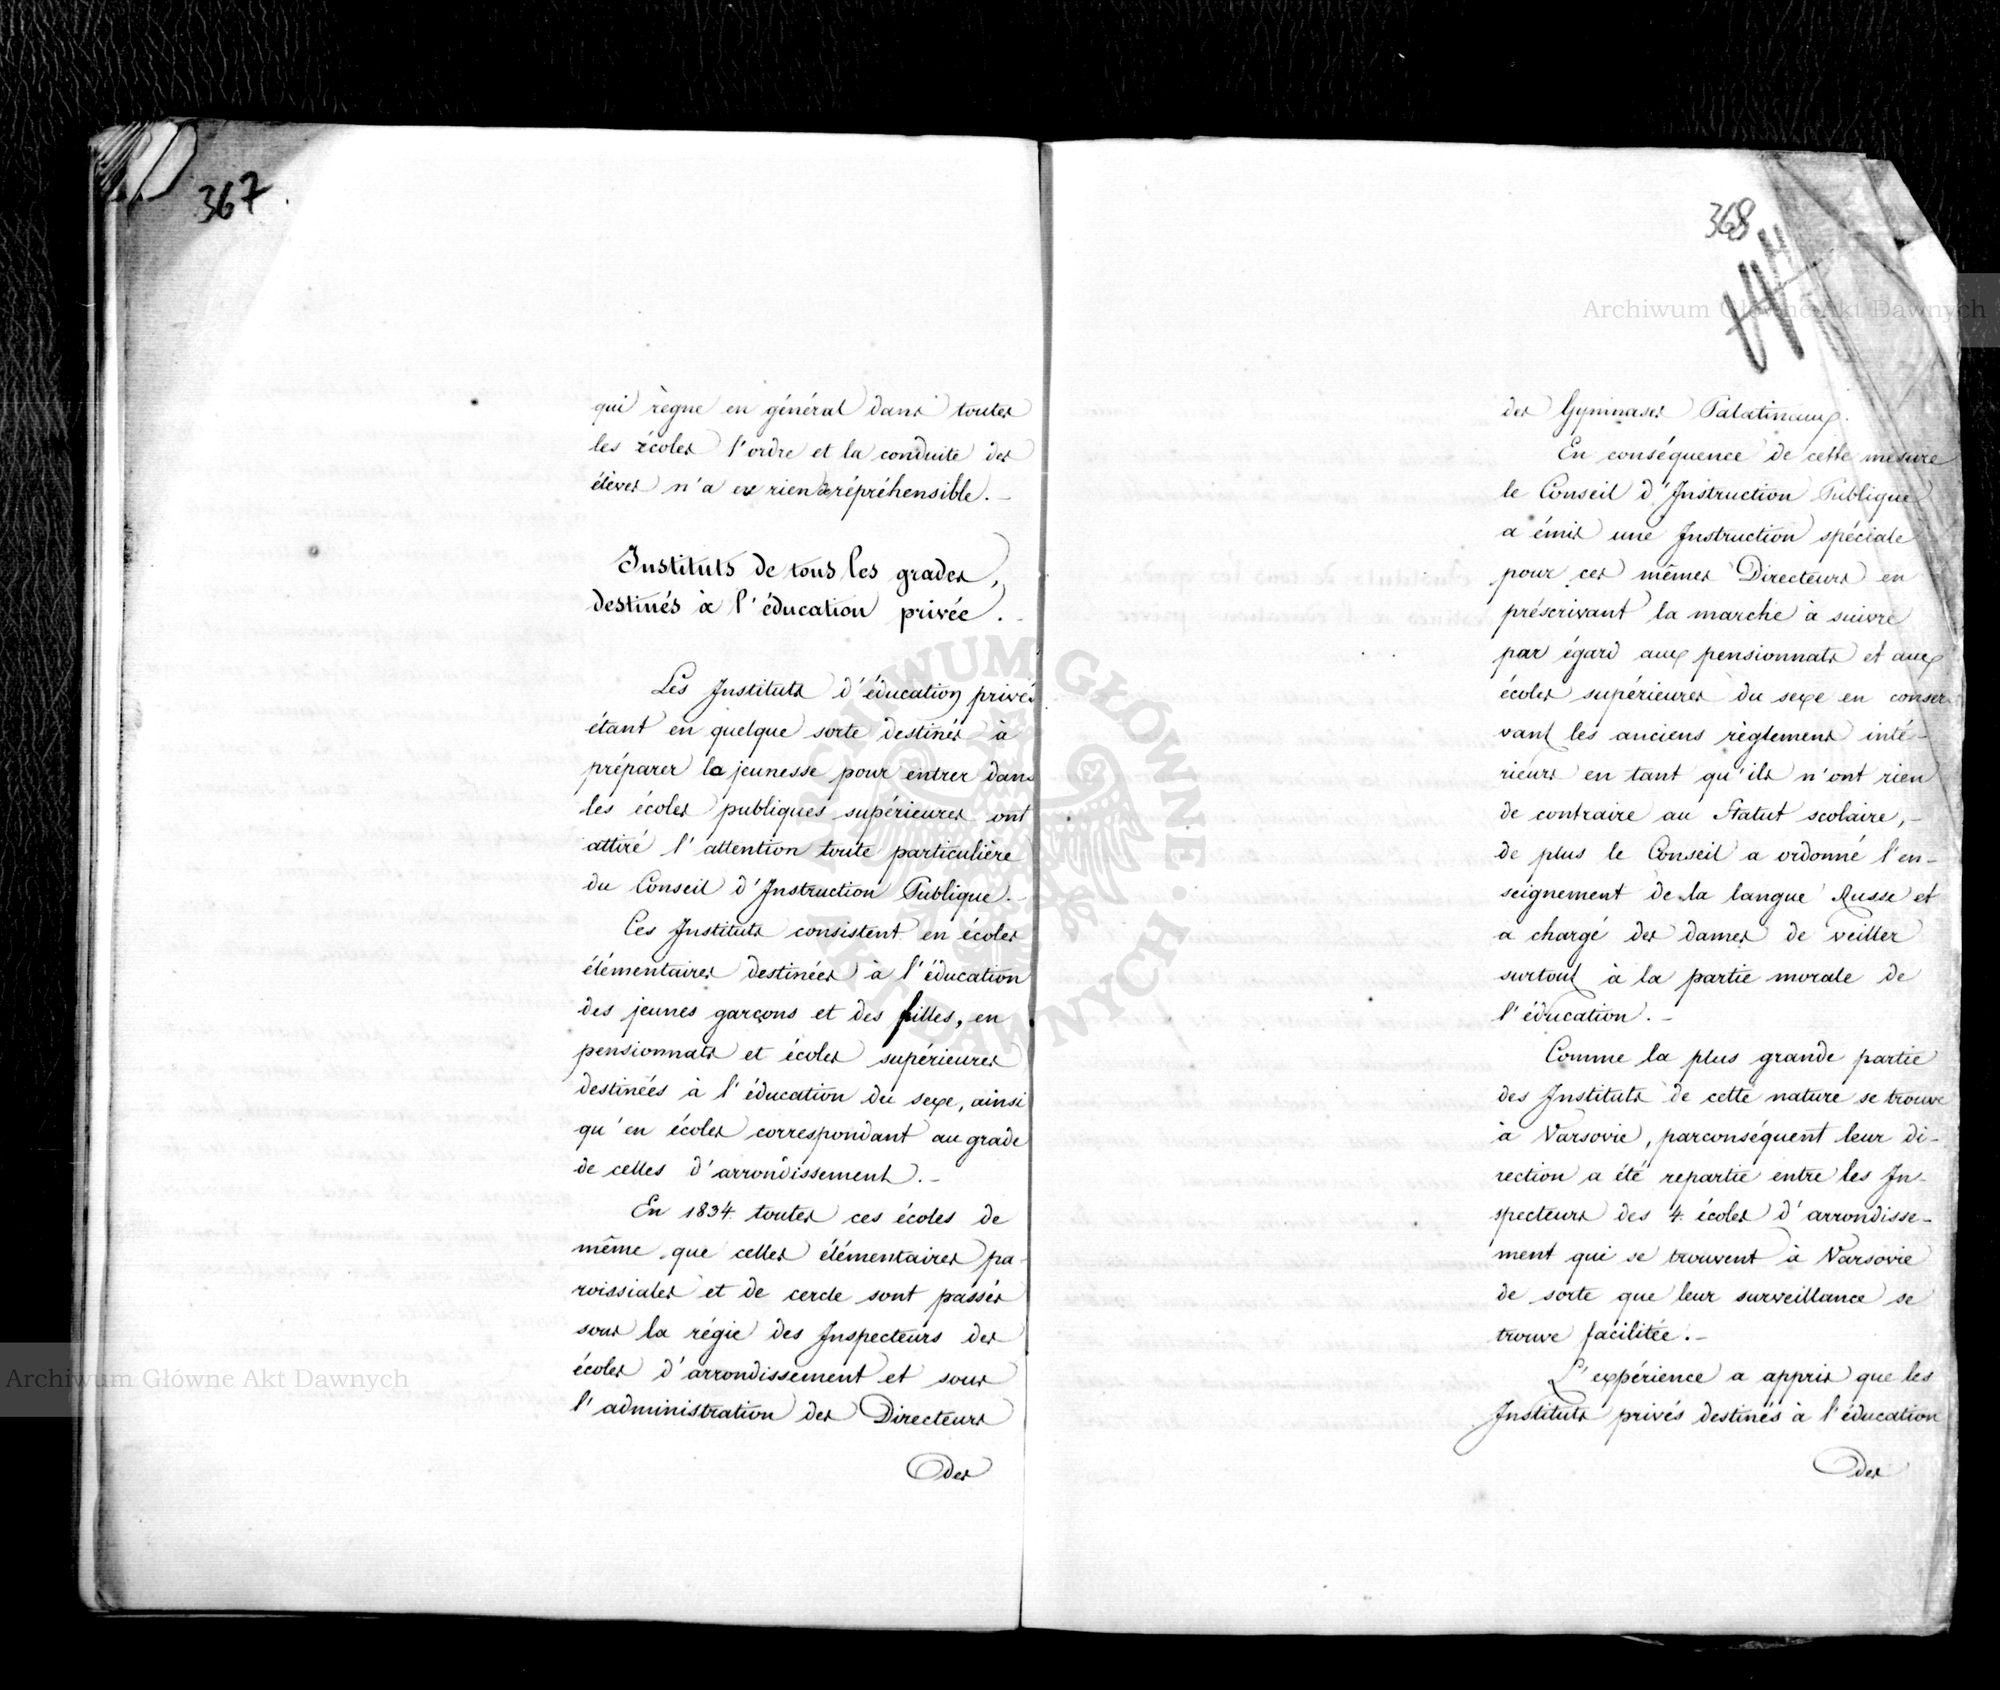 367.
qui règne en général dans toutes
les écoles l'ordre et la conduite des
élèves n'a eu rien de répréhensible. –
Instituts de tous les grades,
destinés à l'éducation privée. –
Les Instituts d'éducation privés
étant en quelque sorte destinés à
préparer la jeunesse pour entrer dans
les écoles publiques supérieures ont
attiré l'attention toute particulière
du Conseil d'Instruction Publique. –
Ces Instituts consistent en écoles
élémentaires destinées à l'éducation
des jeunes garçons et des filles, en
pensionnats et écoles supérieures
destinées à l'éducation du sexe, ainsi
qu'en écoles correspondant au grade
de celles d'arrondissement. –
En 1834 toutes ces écoles de
même que celles élémentaires pa-
roissiales et de cercle sont passés
sous la régie des Inspecteurs des
écoles d'arrondissement et sous
l'administration des Directeurs
des
368
des Gymnases Palatinaux.
En conséquence de cette mesure
le Conseil d'Instruction Publique
a émis une Instruction spéciale
pour ces mêmes Directeurs en
préscrivant la marche à suivre
par égard aux pensionnats et aux
écoles supérieures du sexe en conser-
vant les anciens règlemens inté-
rieurs en tant qu'ils n'ont rien
de contraire au Statut scolaire, –
de plus le Conseil a ordonné l'en-
seignement de la langue Russe et
a chargé des dames de veiller
surtout à la partie morale de
l'éducation. –
Comme la plus grande partie
des Instituts de cette nature se trouve
à Varsovie, parconséquent leur di-
rection a été repartie entre les In-
specteurs des 4. écoles d'arrondisse-
ment qui se trouvent à Varsovie
de sorte que leur surveillance se
trouve facilitée. –
L'expérience a appris que les
Instituts privés destinés à l'éducation
des
Archiwum Główne Akt Dawnych
Archiwum Główne Akt Dawnych
ARCHIWUM GŁÓWNE AKT DAWNYCH